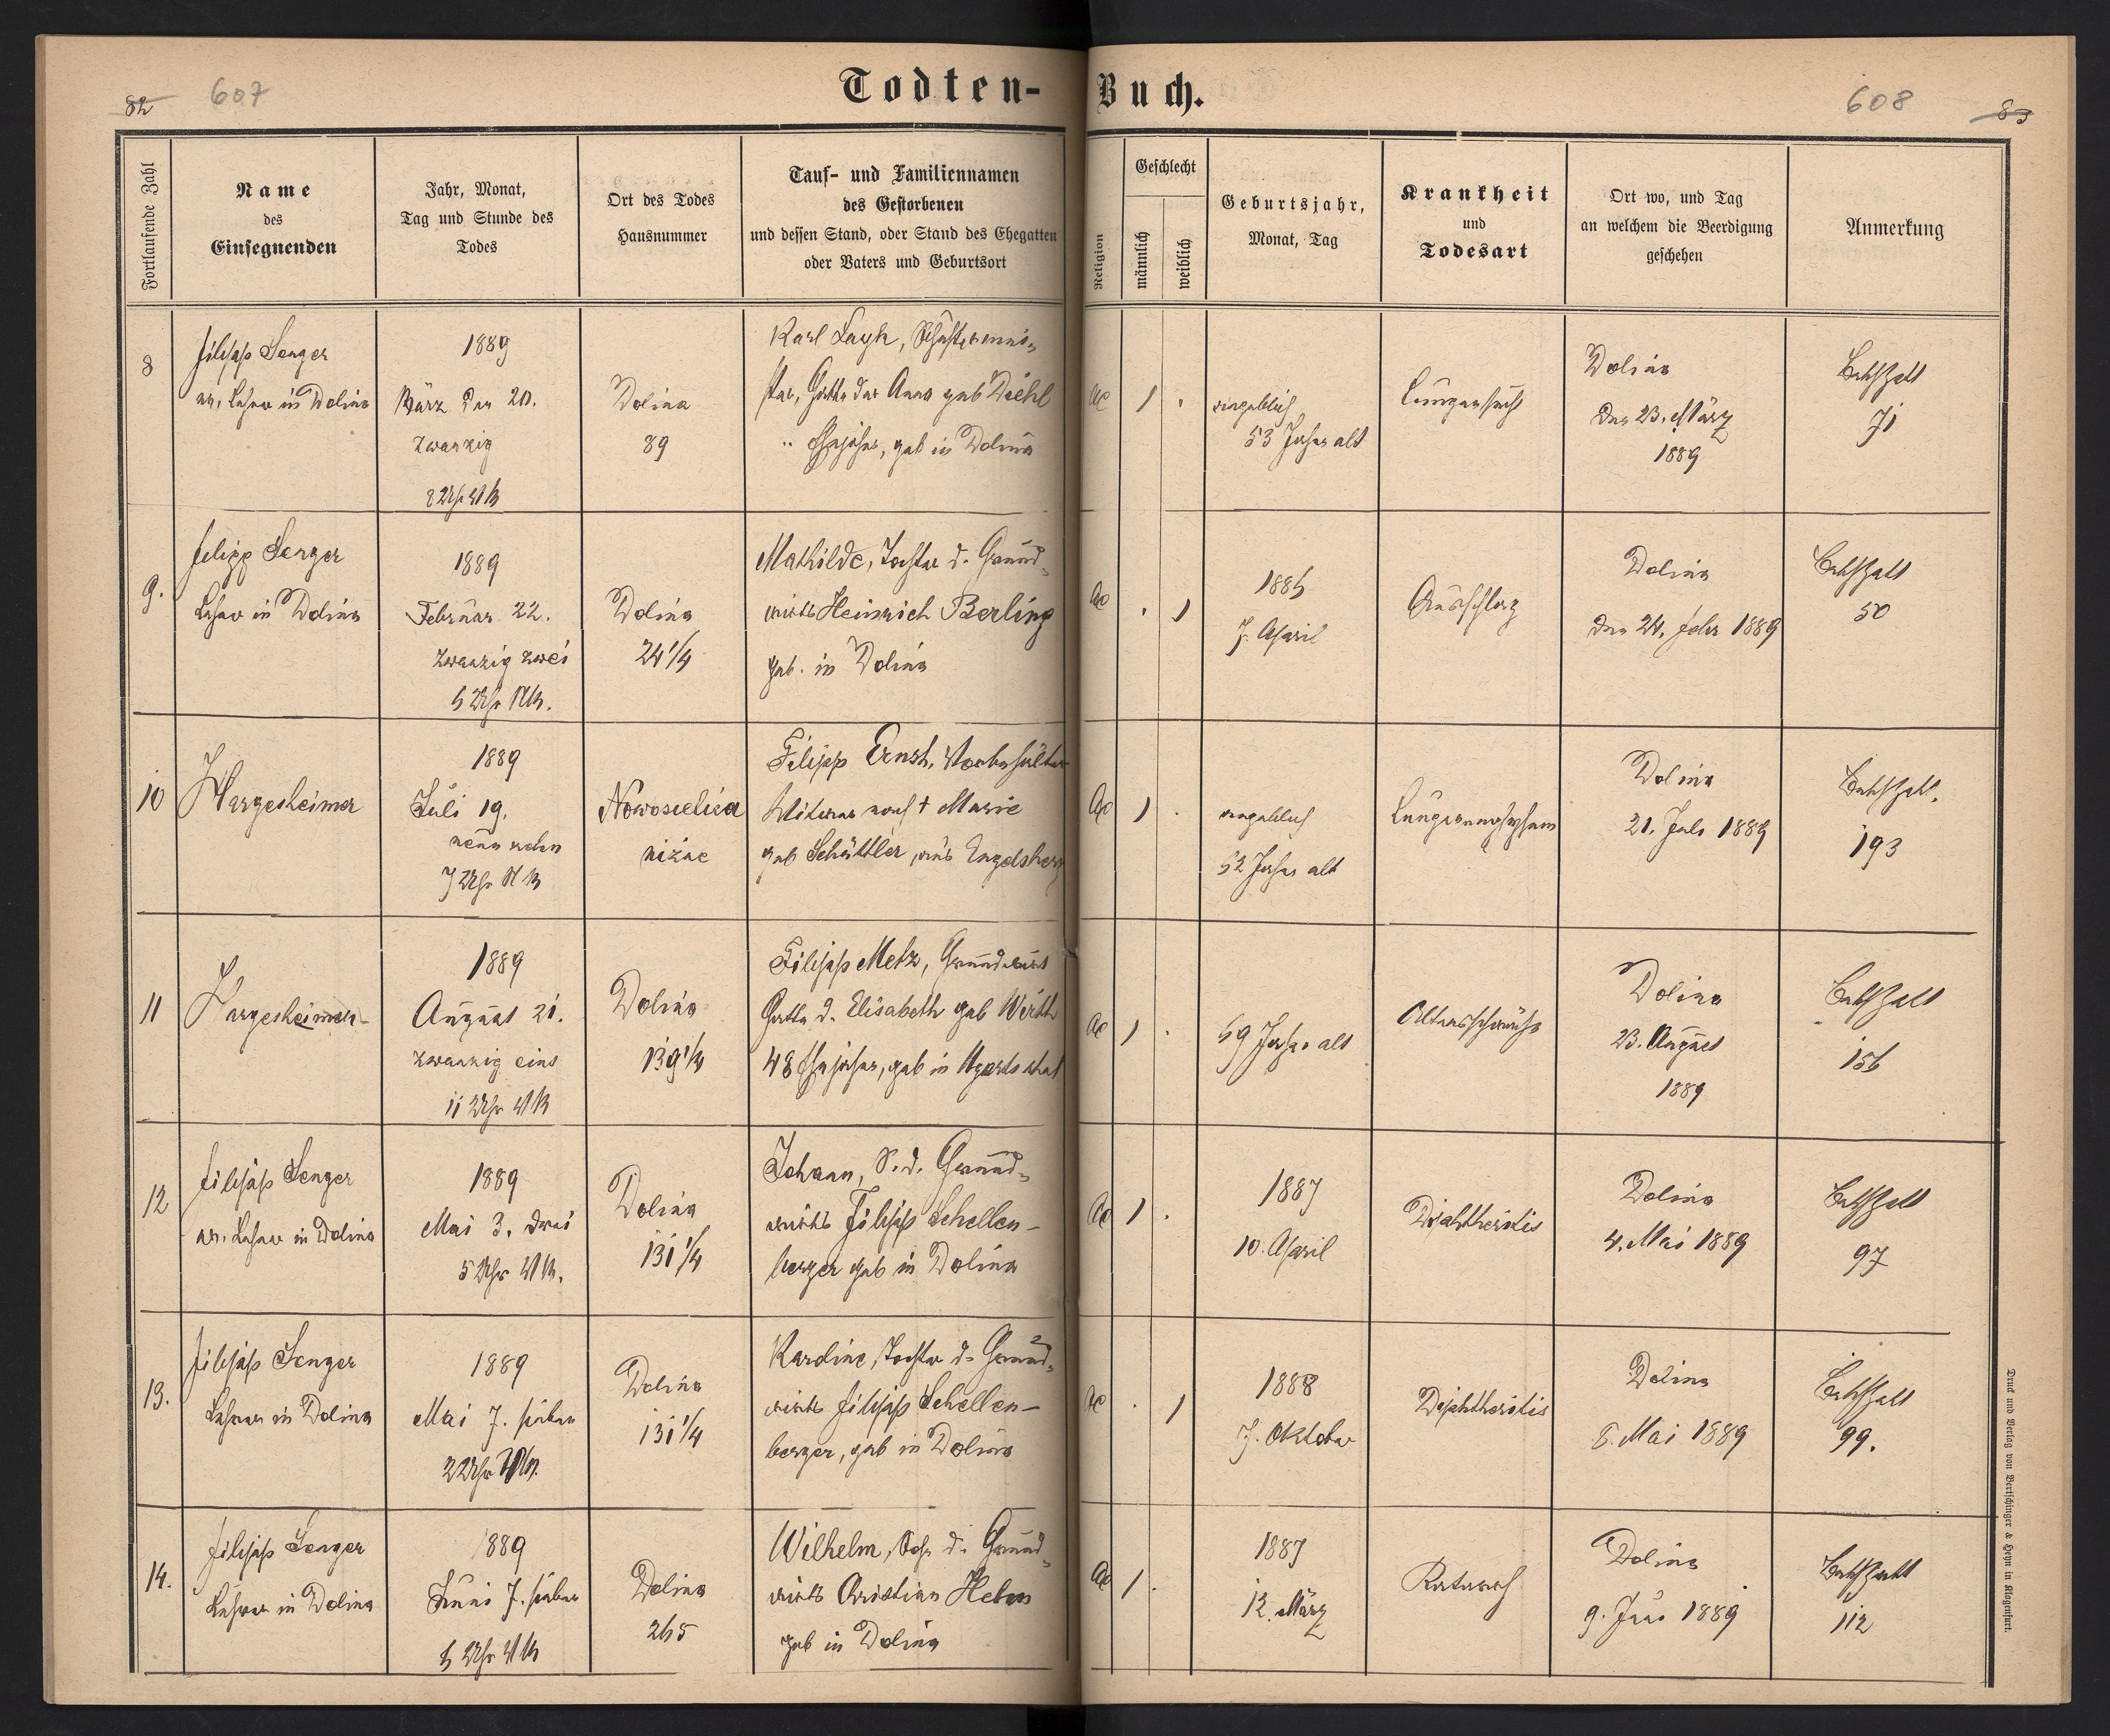 Todten-Buch.
82 607
608 83
Fortlaufende Zahl
Name
des
Einsegnenden
Jahr, Monat,
Tag und Stunde des
Todes
Ort des Todes
Hausnummer
Tauf- und Familiennamen
des Gestorbenen
und dessen Stand, oder Stand des Ehegatten
oder Vaters und Geburtsort
Religion
Geschlecht
männlich
weiblich
Geburtsjahr,
Monat, Tag
Krankheit
und
Todesart
Ort wo, und Tag
an welchem die Beerdigung
geschehen
Anmerkung
8
Filipp Senger
ev. Lehrer in Dolina
1889
März den 20.
zwanzig
8 Uhr VM
Dolina
89
Karl Layh,
Gatte der Anna geb Diehl
Ehejahre, geb in Dolina
AC
1
angeblich
53 Jahre alt
Lungensucht
Dolina
den 23. März
1889
71
9.
Filipp Senger
Lehrer in Dolina
1889
Februar 22.
zwanzig zwei
5 Uhr NM.
Dolina
24 1/4
Mathilde, Tochter d. Grund-
wirts Heinrich Berling
geb. in Dolina
AC
1
7. April
Ausschlag
Dolina
den 24. Febr 1889
50
10
Hargesheimer
1889
Juli 19.
neun zehn
7 Uhr NM
Nowosielica
niżne
Filipp Ernst,
Witwer nach † Marie
geb Schättler, aus Engelsberg
AC
1
angeblich
52 Jahre alt
Dolina
21. Juli 1889
193
11
Hargesheimer
1889
August 21.
zwanzig eins
11 Uhr VM
Dolina
139 1/4
Filipp Metz, Grundwirt
Gatte d. Elisabeth geb Wirth
48 Ehejahre, geb in Ugartsthal
AC
1
69 Jahre alt
Altersschwäche
Dolina
23. August
1889
156
12
Filipp Senger
ev. Lehrer in Dolina
1889
Mai 3. drei
5 Uhr VM.
Dolina
131 1/4
Johann, S. d. Grund-
wirts Filipp Schellen-
berger geb in Dolina
AC
1
1887
10. April
Diphtheritis
Dolina
4. Mai 1889
97
13.
Filipp Senger
Lehrer in Dolina
1889
Mai 7. sieben
2 Uhr
Dolina
131 1/4
Karoline, Tochter d. Grund-
wirts Filipp Schellen-
berger, geb in Dolina
AC
1
1888
7. Oktober
Diphtheritis
Dolina
8. Mai 1889
99.
14.
Filipp Senger
Lehrer in Dolina
1889
Juni 7. sieben
5 Uhr VM
Dolina
265
Wilhelm, Sohn d. Grund-
wirts Christian Helm
geb in Dolina
AC
1
1887
12. März
Katarrh
Dolina
9. Juni 1889
112
Druck und Verlag von Bertschinger & Heyn in Klagenfurt.